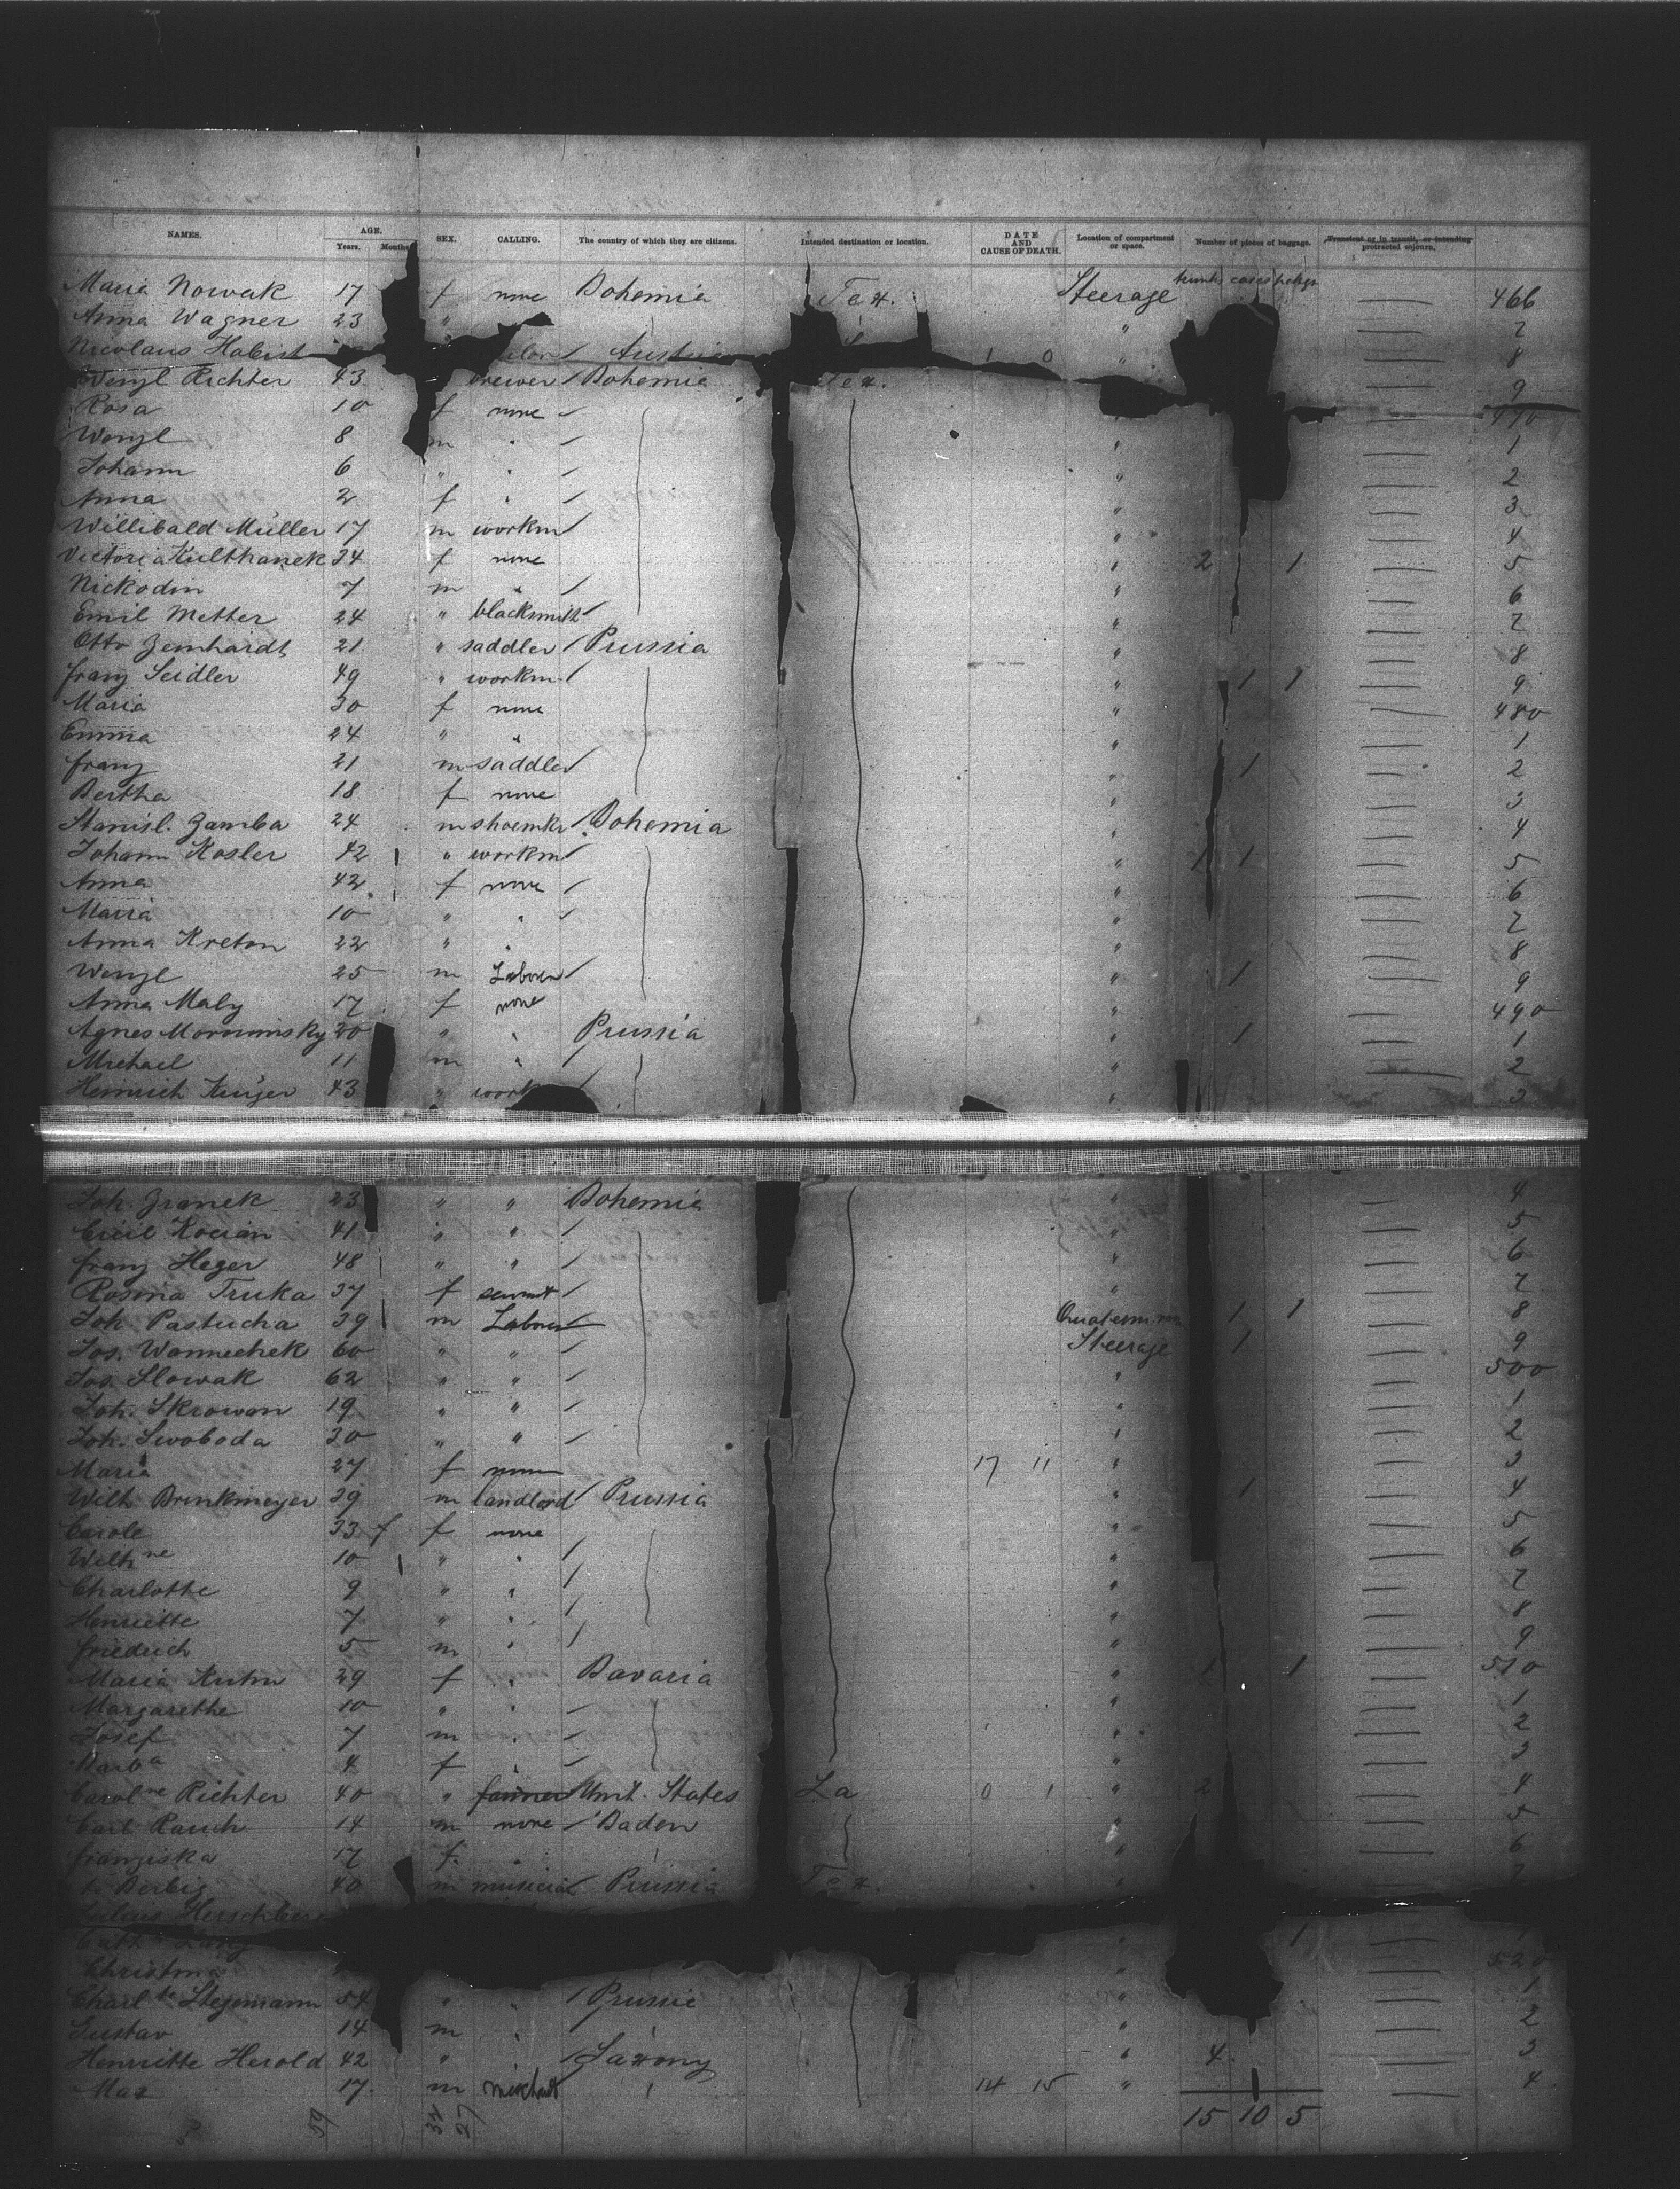 NAMES. AGE. SEX. CALLING. The country of which they are citizens. Intended destination or location. DATE AND CAUSE OF DEATH. Location of compartment or space. Number of pieces of baggage. Transient or in transit, or intending protracted sojourn.
Years. Months
trunks cases pckgs
Maria Nowak 17 f none Bohemia Tex. Steerage 466
Anna Wagner 23 " " 7
Nicolaus Austria 1 0 " 8
Wenzl Richter 43 brewer Bohemia Tex. 9
Rosa 10 f none 470
Wenzl 8 m " " 1
Johann 6 " " " 2
Anna 2 f " " 3
Willibald Müller 17 m workm " 4
Victoria 34 f none " 2 1 5
Nickodem 7 m " " 6
Emil Metter 24 " blacksmith " 7
Otto 21 " saddler Prussia " 8
Franz Seidler 49 " workm " 1 1 9
Maria 30 f none " 480
Emma 24 " " " 1
Franz 21 m saddler " 1 2
Bertha 18 f none " 3
Stanisl. Zamba 24 m shoemkr Bohemia " 4
Johann Kosler 42 " workm " 1 1 5
Anna 42 f none " 6
Maria 10 " " " 7
Anna Kreton 22 " " " 8
Wenzl 25 m Laborer " 1 9
Anna Maly 17 f none " 490
Agnes 30 " " Prussia " 1 1
Michael 11 m " " 2
Heinrich 43 " work " 3
Joh. Zranek 23 " " Bohemia " 4
Kocian 41 " " " 5
Franz Heger 48 " " " 6
Rosina Truka 37 f servant " 7
Joh. Pastucha 39 m Laborer 1 1 8
Jos. Wannechek 60 " " Steerage 1 9
Jos. Slowak 62 " " " 500
Joh. Skrowan 19 " " " 1
Joh. Swoboda 30 " " " 2
Maria 27 f none 17 11 " 3
Wilh. Brinkmeyer 39 m landlord Prussia " 1 4
Carole 33 f f none " 5
Wilhne 10 " " " 6
Charlotte 9 " " " 7
Henriette 7 " " " 8
Friedrich 5 m " " 9
Maria Kuhn 29 f " Bavaria " 1 1 510
Margarethe 10 " " " 1
Josef 7 m " " 2
Barba 4 f " " 3
Carolne Richter 40 " farmer Unit. States La 0 1 " 2 4
Carl Rauch 14 m none Baden " 5
Franziska 17 f. " " 6
Berbig 40 m musician Prussia Tex. " 7
Julius
Cath. " 1
Christina " 520
Charlte Stegemann 54 " " Prussia " 1
Gustav 14 m " " 2
Henriette Herold 42 " " Saxony " 4 3
Max 17 m merchant 14 15 " 1 4
59 32 27 15 10 5